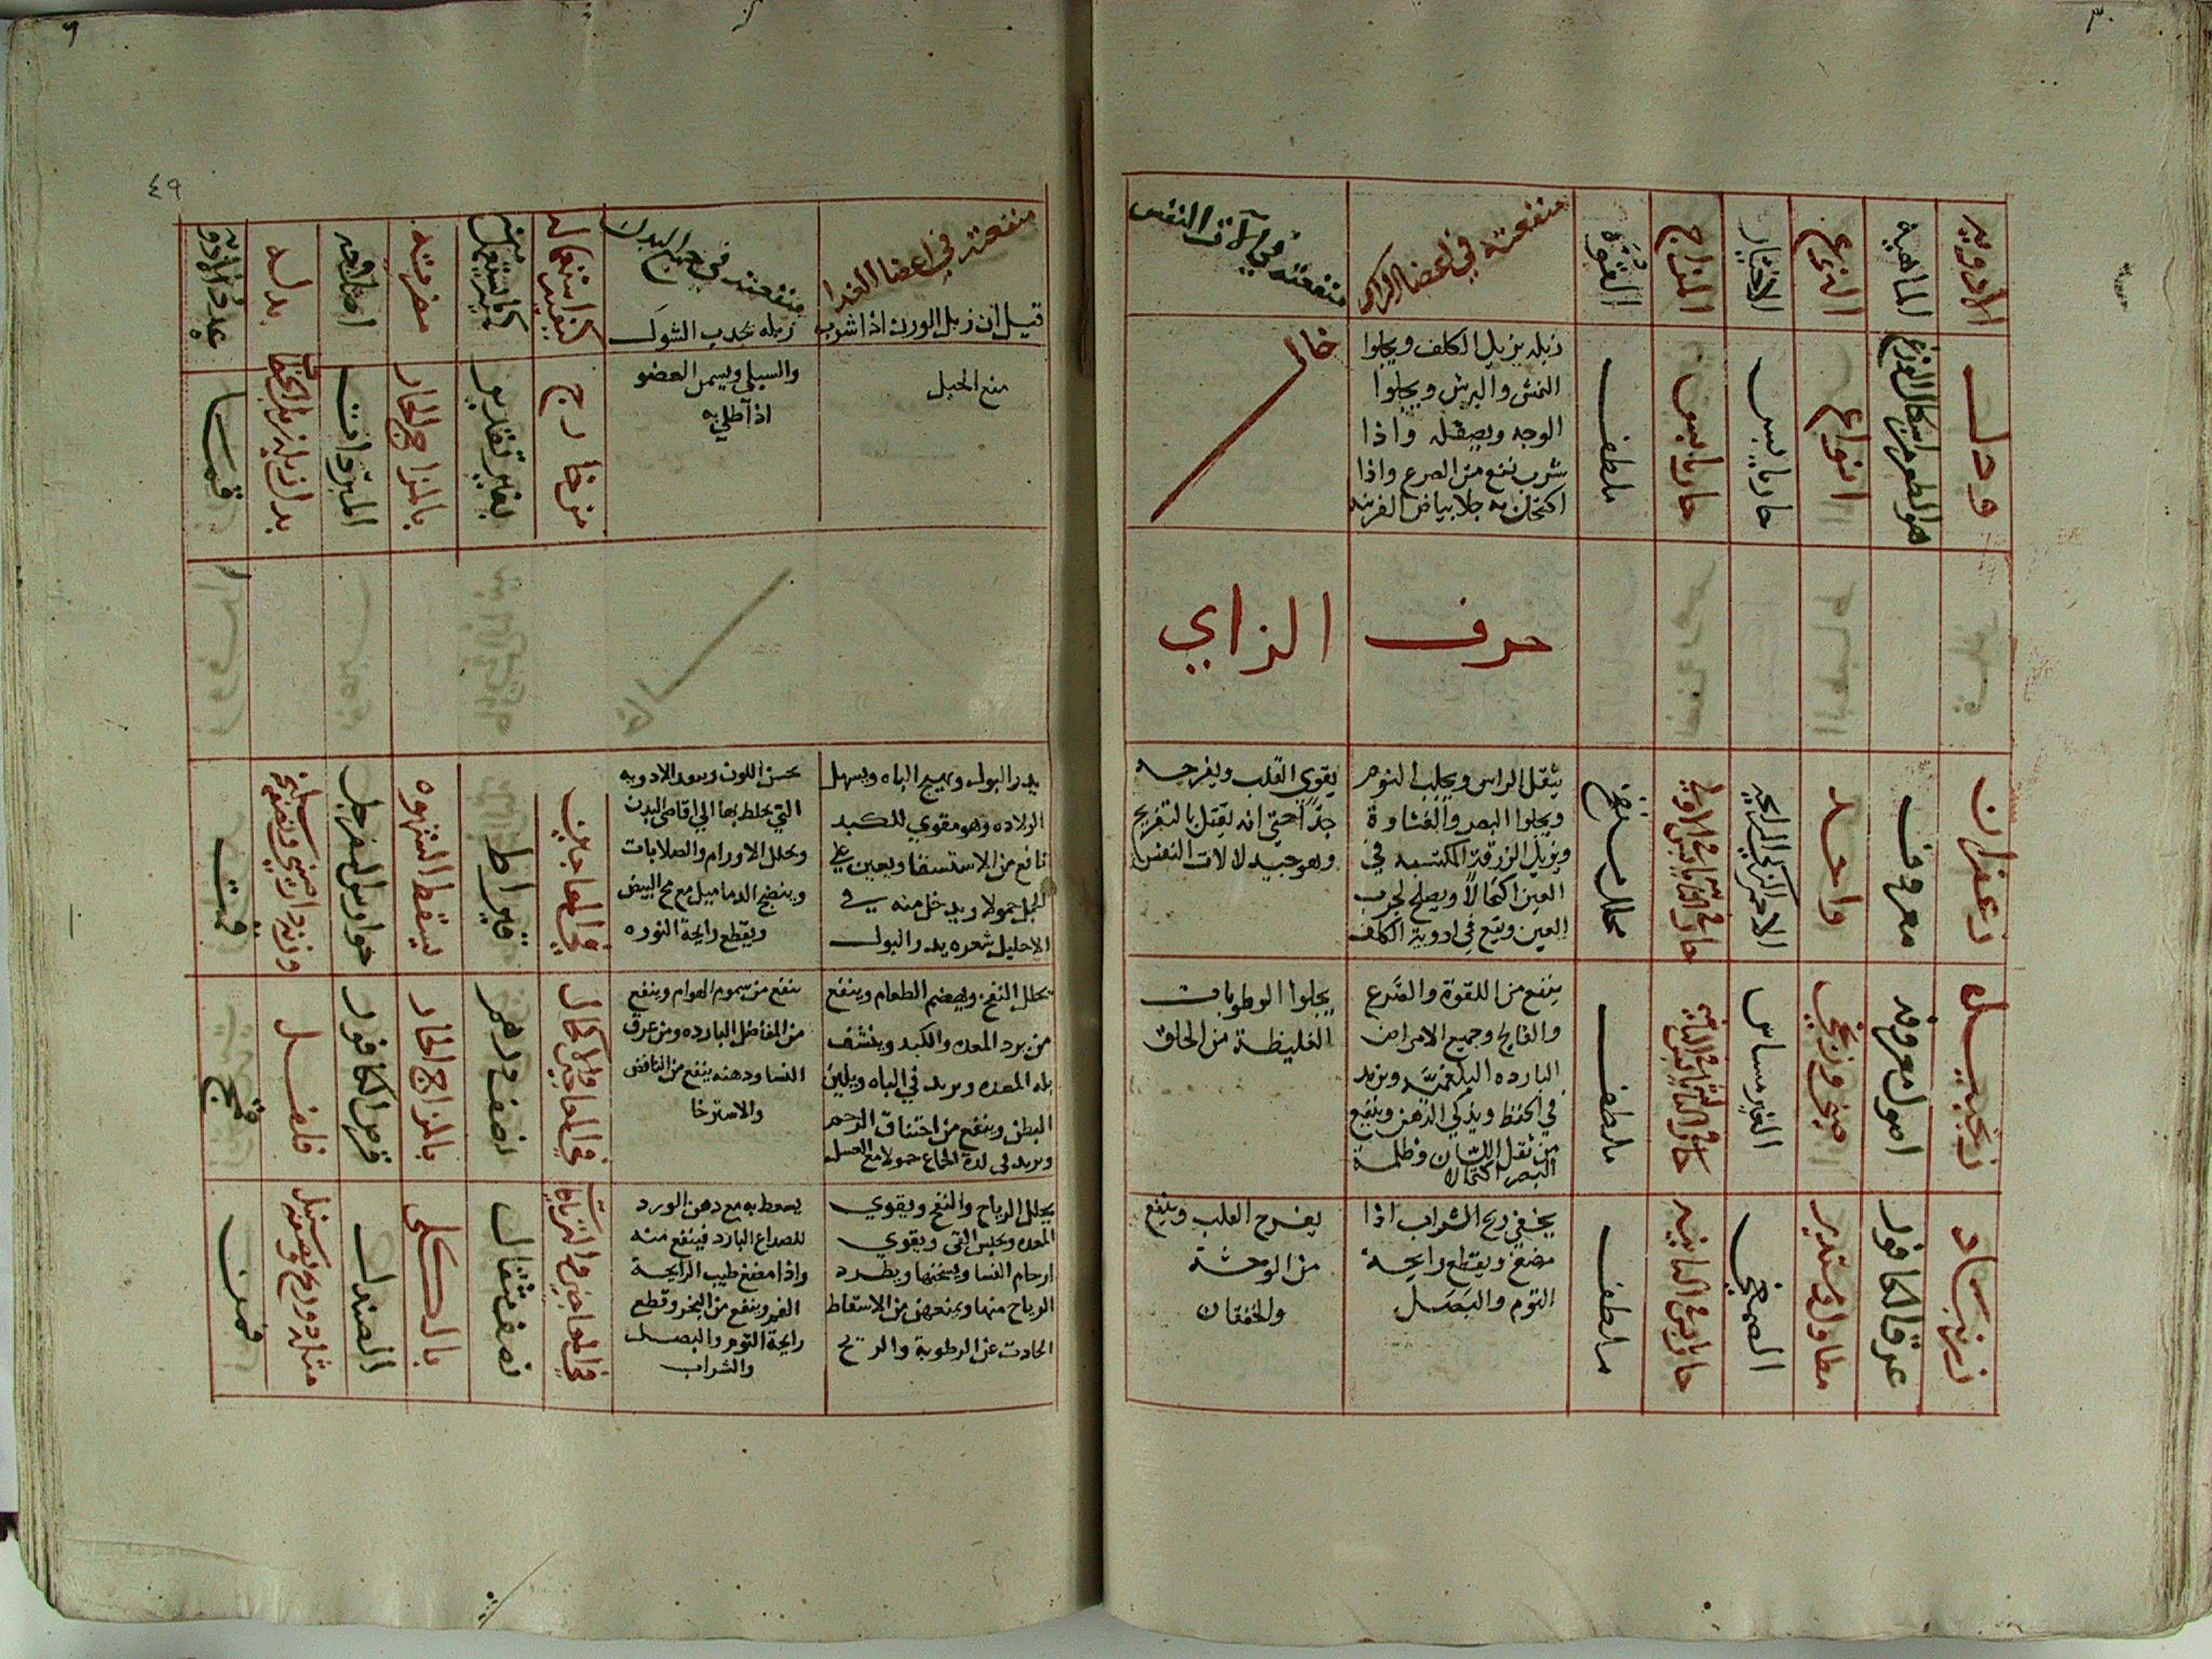 ٤٩
الادويه
الماهية
النوع
الاختيار
المزاج
القوة
منفعته في اعضا الراس
منفعته في آلات النفس
ورل
انواع
حار يابس
حار يابس
ملطف
زبله يزيل الكلف ويجلوا
النمش والبرش ويجلوا
الوجه ويصقله واذا
شرب نفع من الصرع واذا
اكتحل به جلا بياض القرنيه
خال
حرف الزاي
زعفران
معروف
واحد
الاحمر الزكي الرايحه
محلل منضج
يثقل الراس ويجلب النوم
ويجلوا البصر والغشاوة
ويزيل الزرقة المكتسبه في
العين اكتحالا ويصلح لجرب
العين ويقع في ادوية الكلف
يقوي القلب ويفرحه
جدا حتي انه يقتل بالتفريح
وهو جيد لالات النفس
زنجبيل
اصول معروفه
صيني وزنجي
ملطف
ينفع من اللقوة والصرع
والفالج وجميع الامراض
البارده البلغميه ويزيد
في الحفظ ويذكي الذهن وينفع
من ثقل اللسان وظلمة
البصر اكتحالا
يجلوا الرطوبات
الغليظة من الحلق
زرنباد
عرق الكافور
مطاول ومستدير
حار يابس في الثانيه
ملطف
يخفي ريح الشراب اذا
مضغ ويقطع رايحة
الثوم والبصل
يفرح القلب وينفع
من الوحشة
والخفقان
منفعته في اعضا الغدا
منفعته في جميع البدن
كيفية استعماله
كمية ما يستعمل منه
مضرته
اصلاحه
بدله
عدد الادويه
قيل ان زبل الورل اذا شرب
منع الحبل
زبله يجدب الشوك
والسلي ويسمن العضو
اذا طلي به
من خارج
بغير تقدير
بالمزاج الحار
المبردات
يدر البول ويهيج الباه ويسهل
الولاده وهو مقوي للكبد
نافع من الاستسقا ويعين علي
الحبل حمولا ويدخل منه في
الاحليل شعره يدر البول
يحسن اللون وينفذ الادويه
التي يخلط بها الي اقاصي البدن
ويحلل الاورام والصلابات
وينضج الدماميل مع مح البيض
ويقطع رايحة النوره
في المعاجين
قيراط
يسقط الشهوه
يحلل النفخ ويهضم الطعام وينفع
من برد المعده والكبد وينشف
بلة المعده ويزيد في الباه ويلين
البطن وينفع من اختناق الرحم
ويزيد في لذة الجماع حمولا مع العسل
ينفع من سموم الهوام وينفع
من المفاصل البارده ومن عرق
النسا ودهنه ينفع من النافض
والاسترخا
في المعاجين والاكحال
نصف درهم
بالمزاج الحار
قرص الكافور
فلفل
يحلل الرياح والنفخ ويقوي
المعده ويحبس القي ويقوي
ارحام النسا ويسخنها ويطرد
الرياح منها ويمنعهن من الاسقاط
الحادث عن الرطوبة والريح
يسعط به مع دهن الورد
للصداع البارد فينفع منه
واذا مضغ طيب الرايحة
الفم وينفع من البخر وقطع
رايحة الثوم والبصل
والشراب
في المعاجين والترياقات
نصف مثقال
بالكلي
الصندل